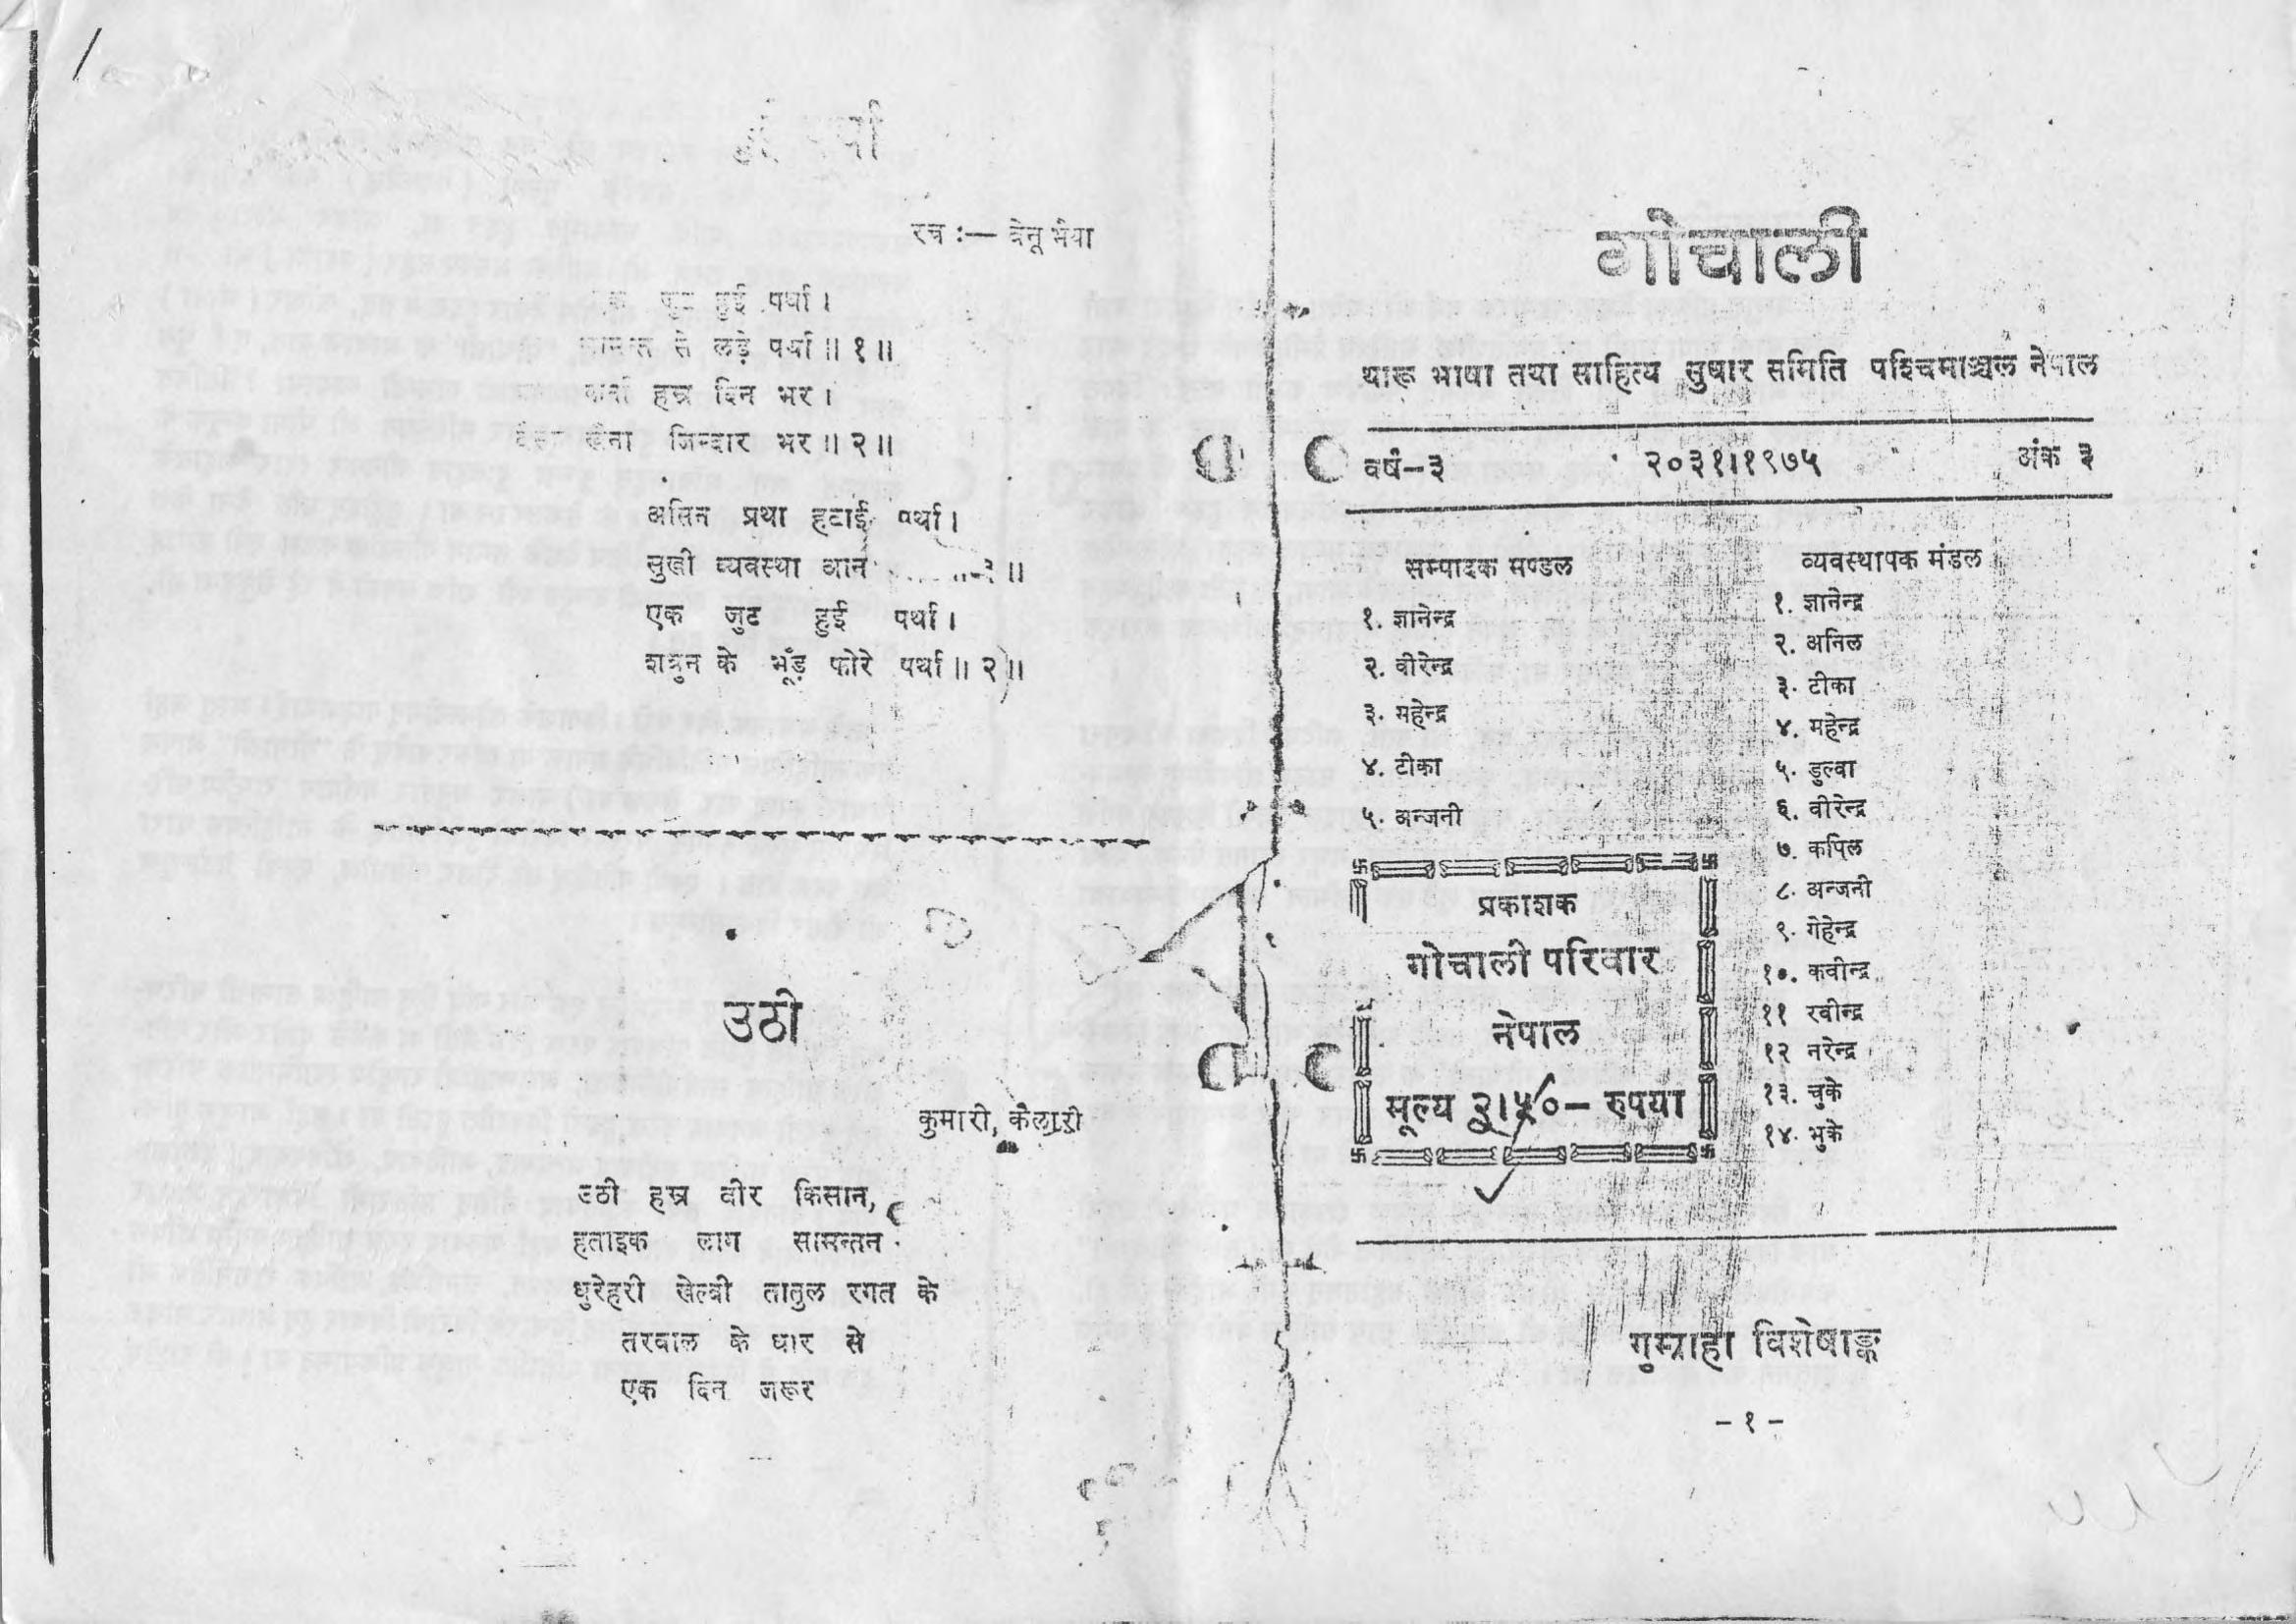 रच :— बेनू भैया
हुई पर्था ।
से लड़े पर्था ॥ १ ॥
हम्र दिन भर ।
जिन्दार भर ॥ २ ॥
असिन प्रथा हटाई पर्था ।
सुखी व्यवस्था आन
एक जुट हुई पर्था ।
शत्रुन के भूँड़ फोरे पर्था ॥ २ ॥
उठी
कुमारी, कैलारी
उठी हम्र वीर किसान,
हताइक लाग सामन्तन
धुरेहरी खेल्बी तातुल रगत के
तरवाल के धार से
एक दिन जरूर
गोचाली
थारू भाषा तथा साहित्य सुधार समिति पश्चिमाञ्चल नेपाल
वर्ष–३ २०३१।१९७५ अंक ३
सम्पादक मण्डल
१. ज्ञानेन्द्र
२. वीरेन्द्र
३. महेन्द्र
४. टीका
५. अन्जनी
व्यवस्थापक मंडल
१. ज्ञानेन्द्र
२. अनिल
३. टीका
४. महेन्द्र
५. डुल्वा
६. वीरेन्द्र
७. कपिल
८. अन्जनी
९. गेहेन्द्र
१०. कवीन्द्र
११ रवीन्द्र
१२ नरेन्द्र
१३. चुके
१४. भुके
प्रकाशक
गोचाली परिवार
नेपाल
मूल्य २।५०– रुपया
गुम्राहा विशेषाङ्क
– १ –